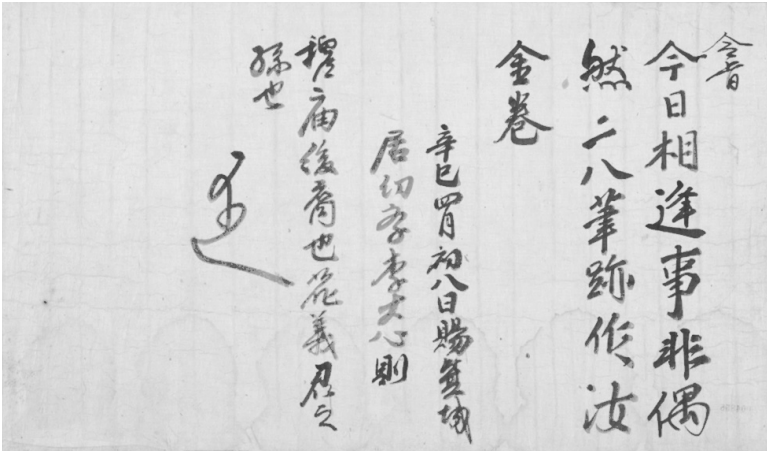 今日相逢事非偶
然二八筆跡作汝
金卷
辛巳四月初八日賜
居幼字李大心則
穆廟後裔也花義君之
孫也